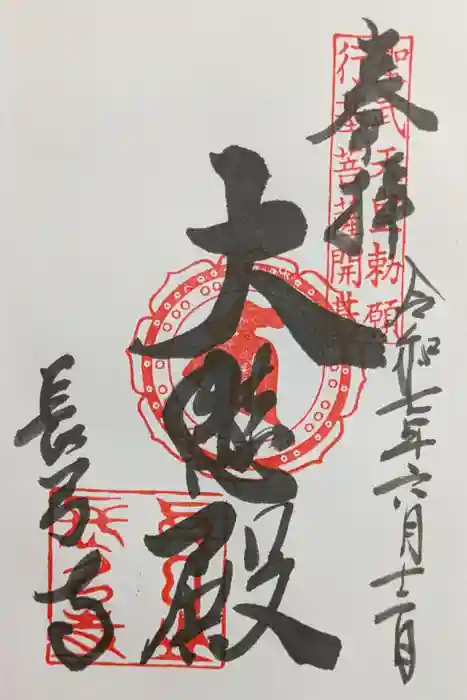 聖武天皇勅願
行基菩薩開基
奉拝
令和七年六月十二日
大悲殿
長弓寺